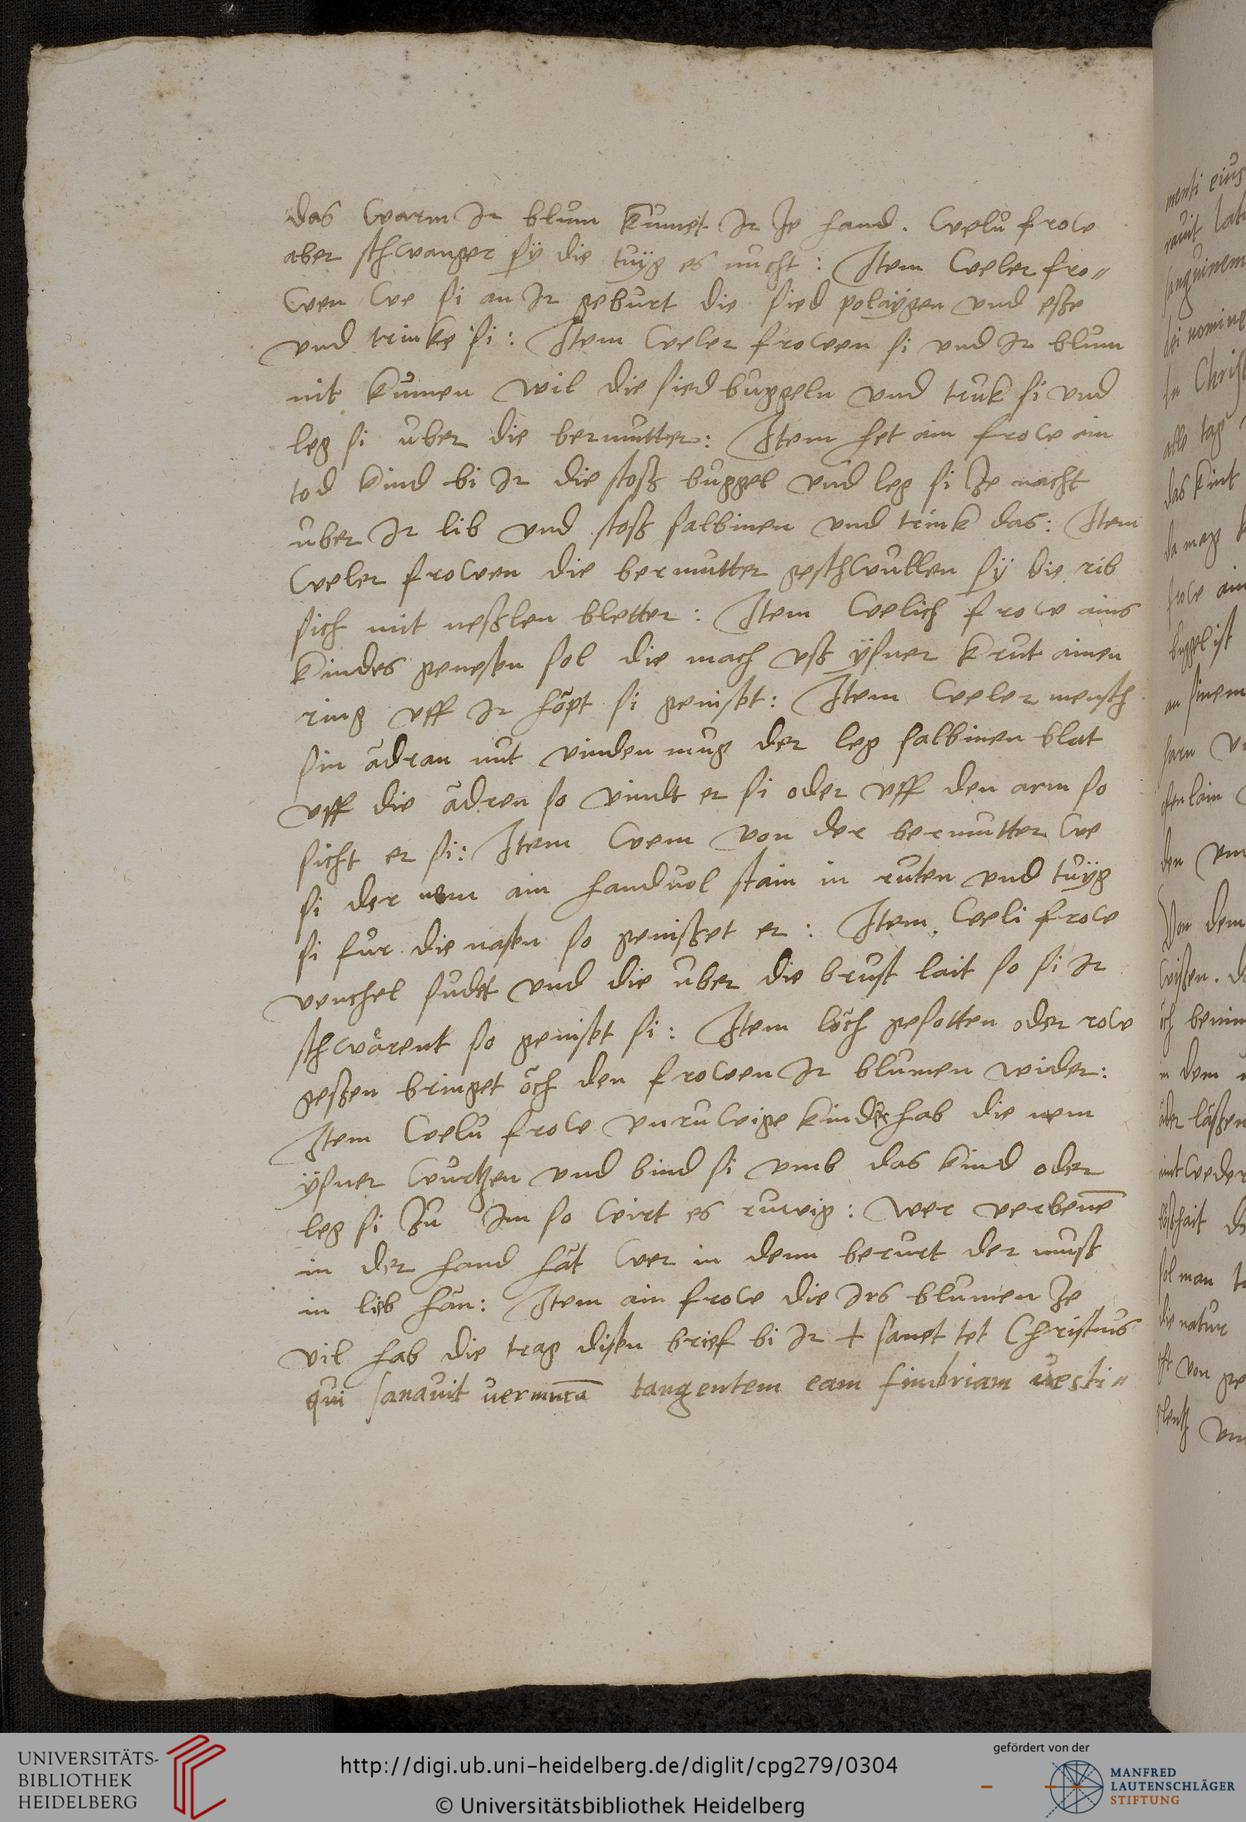 das warm ir blům kůmet ir ze hand. welů frow
aber schwanger sÿ die tuÿg es nucht: Item weler fro„
wen we si an ir geburt die sied polaÿgen und esse
und trinke si: Item weler frowen si und ir blům
nit kůmen wil die sied buggeln und truk si und
leg si uber die bermutter: Item het ain frow ain
tod kind bi ir die stoß buggel und leg si ze nacht
uber ir lib und stoß salbinen und trink das: Item
weler frowen die bermutter geschwullen sÿ die rib
sich mit neßlen bletter: Item welich frow ains
kindes genesen sol die mach uß ÿsner krut ainen
ring uff ir höpt si geniset: Item weler mensch
sin ädran nut vinden mug der leg salbinen blat
uff die ädren so vindt er si oder uff den arm so
sicht er si: Item wem von der bermutter we
si der nem ain handvol stain in ruten und tuÿg
si für die nasen so genisset er: Item weli frow
venchel sudet und die uber die brust lait so si ir
schwärent so geniset si: Item löch gesotten oder row
gessen bringet öch den frowen ir blůmen wider:
Item welů frow unruwige kinder hab die nem
ÿsner wurtzen und bind si umb das kind oder
leg si zu im so wirt es ruwig: wer verbenē
in der hand hät wer in denn berurt der muß
in lieb han: Item ain frow die irs blůmen ze
vil hab die trag disen brief bi ir + sanet tet Christus
qui sanavit tangentem eam fimbriam vesti„
menti eius
sanguinem
dei nomine
alle tag
das kint
da mag
frow ain
buggel ist
an sinem
den
Von dem
wissen. d
ich
in dem
oder lässen
intweder
sol man
die natur
von
UNIVERSITÄTS-
BIBLIOTHEK
HEIDELBERG
http://digi.ub.uni-heidelberg.de/diglit/cpg279/0304
© Universitätsbibliothek Heidelberg
gefördert von der
MANFRED
LAUTENSCHLÄGER
STIFTUNG